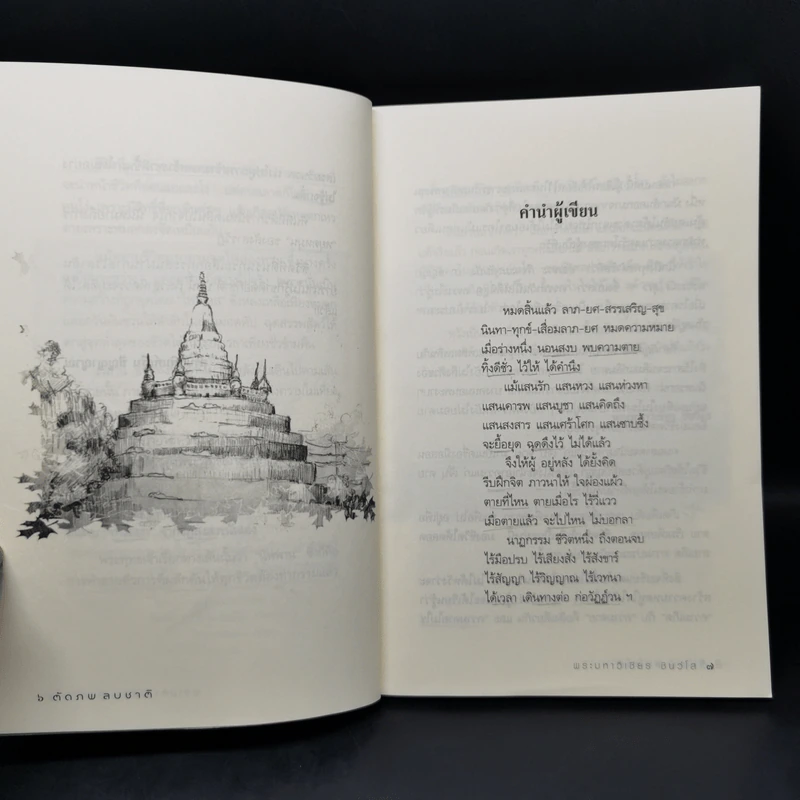 ๖ ตัดภพ ลบชาติ
คำนำผู้เขียน
หมดสิ้นแล้ว ลาภ-ยศ-สรรเสริญ-สุข
นินทา-ทุกข์-เสื่อมลาภ-ยศ หมดความหมาย
เมื่อร่างหนึ่ง นอนสงบ พบความตาย
ทิ้งดีชั่ว ไว้ให้ ได้คำนึง
แม้แสนรัก แสนหวง แสนห่วงหา
แสนเคารพ แสนบูชา แสนคิดถึง
แสนสงสาร แสนเศร้าโศก แสนซาบซึ้ง
จะยื้อยุด ฉุดดึงไว้ ไม่ได้แล้ว
จึงให้ผู้ อยู่หลัง ได้ยั้งคิด
รีบฝึกจิต ภาวนาให้ ใจผ่องแผ้ว
ตายที่ไหน ตายเมื่อไร ไร้วี่แวว
เมื่อตายแล้ว จะไปไหน ไม่บอกลา
นาฏกรรม ชีวิตหนึ่ง ถึงตอนจบ
ไร้มือปรบ ไร้เสียงสั่ง ไร้สังขาร์
ไร้สัญญา ไร้วิญญาณ ไร้เวทนา
ได้เวลา เดินทางต่อ ก่อวัฏฏ์วน ฯ
พระมหาวิเชียร ชินวํโส ๗